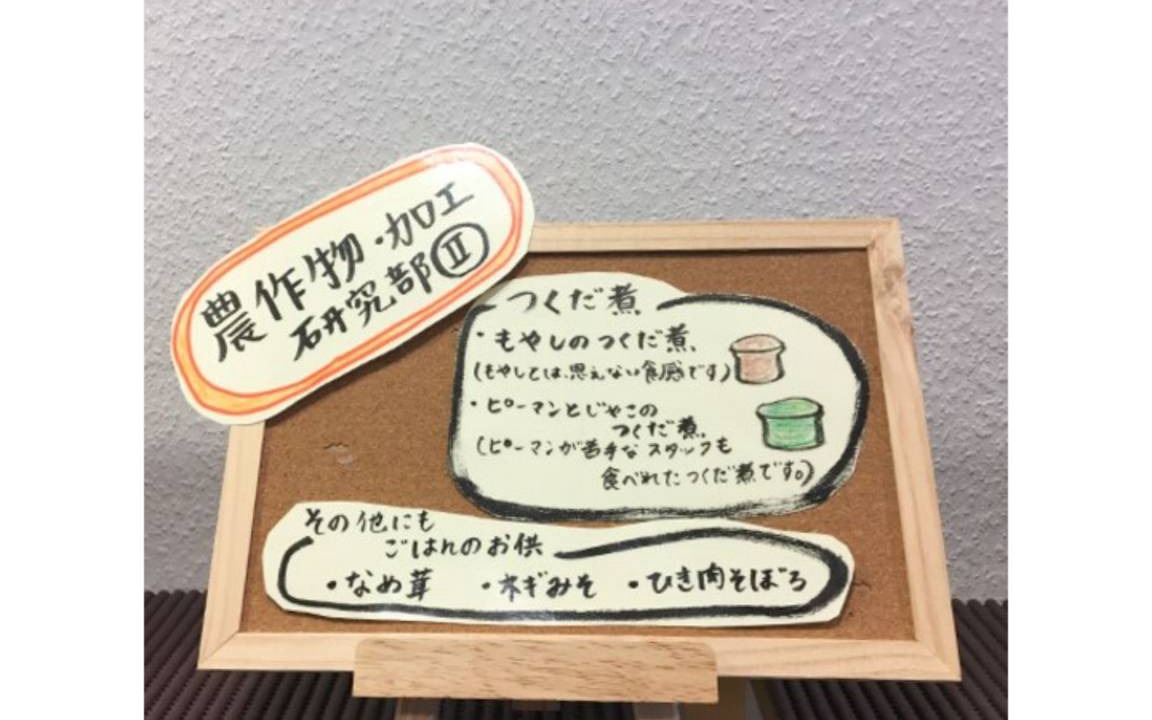 農作物・加工
研究部Ⅱ
つくだ煮
・もやしのつくだ煮
(もやしとは思えない食感です)
・ピーマンとじゃこの
つくだ煮
(ピーマンが苦手なスタッフも
食べれたつくだ煮です。)
その他にも
ごはんのお供
・なめ茸 ・ネギみそ ・ひき肉そぼろ